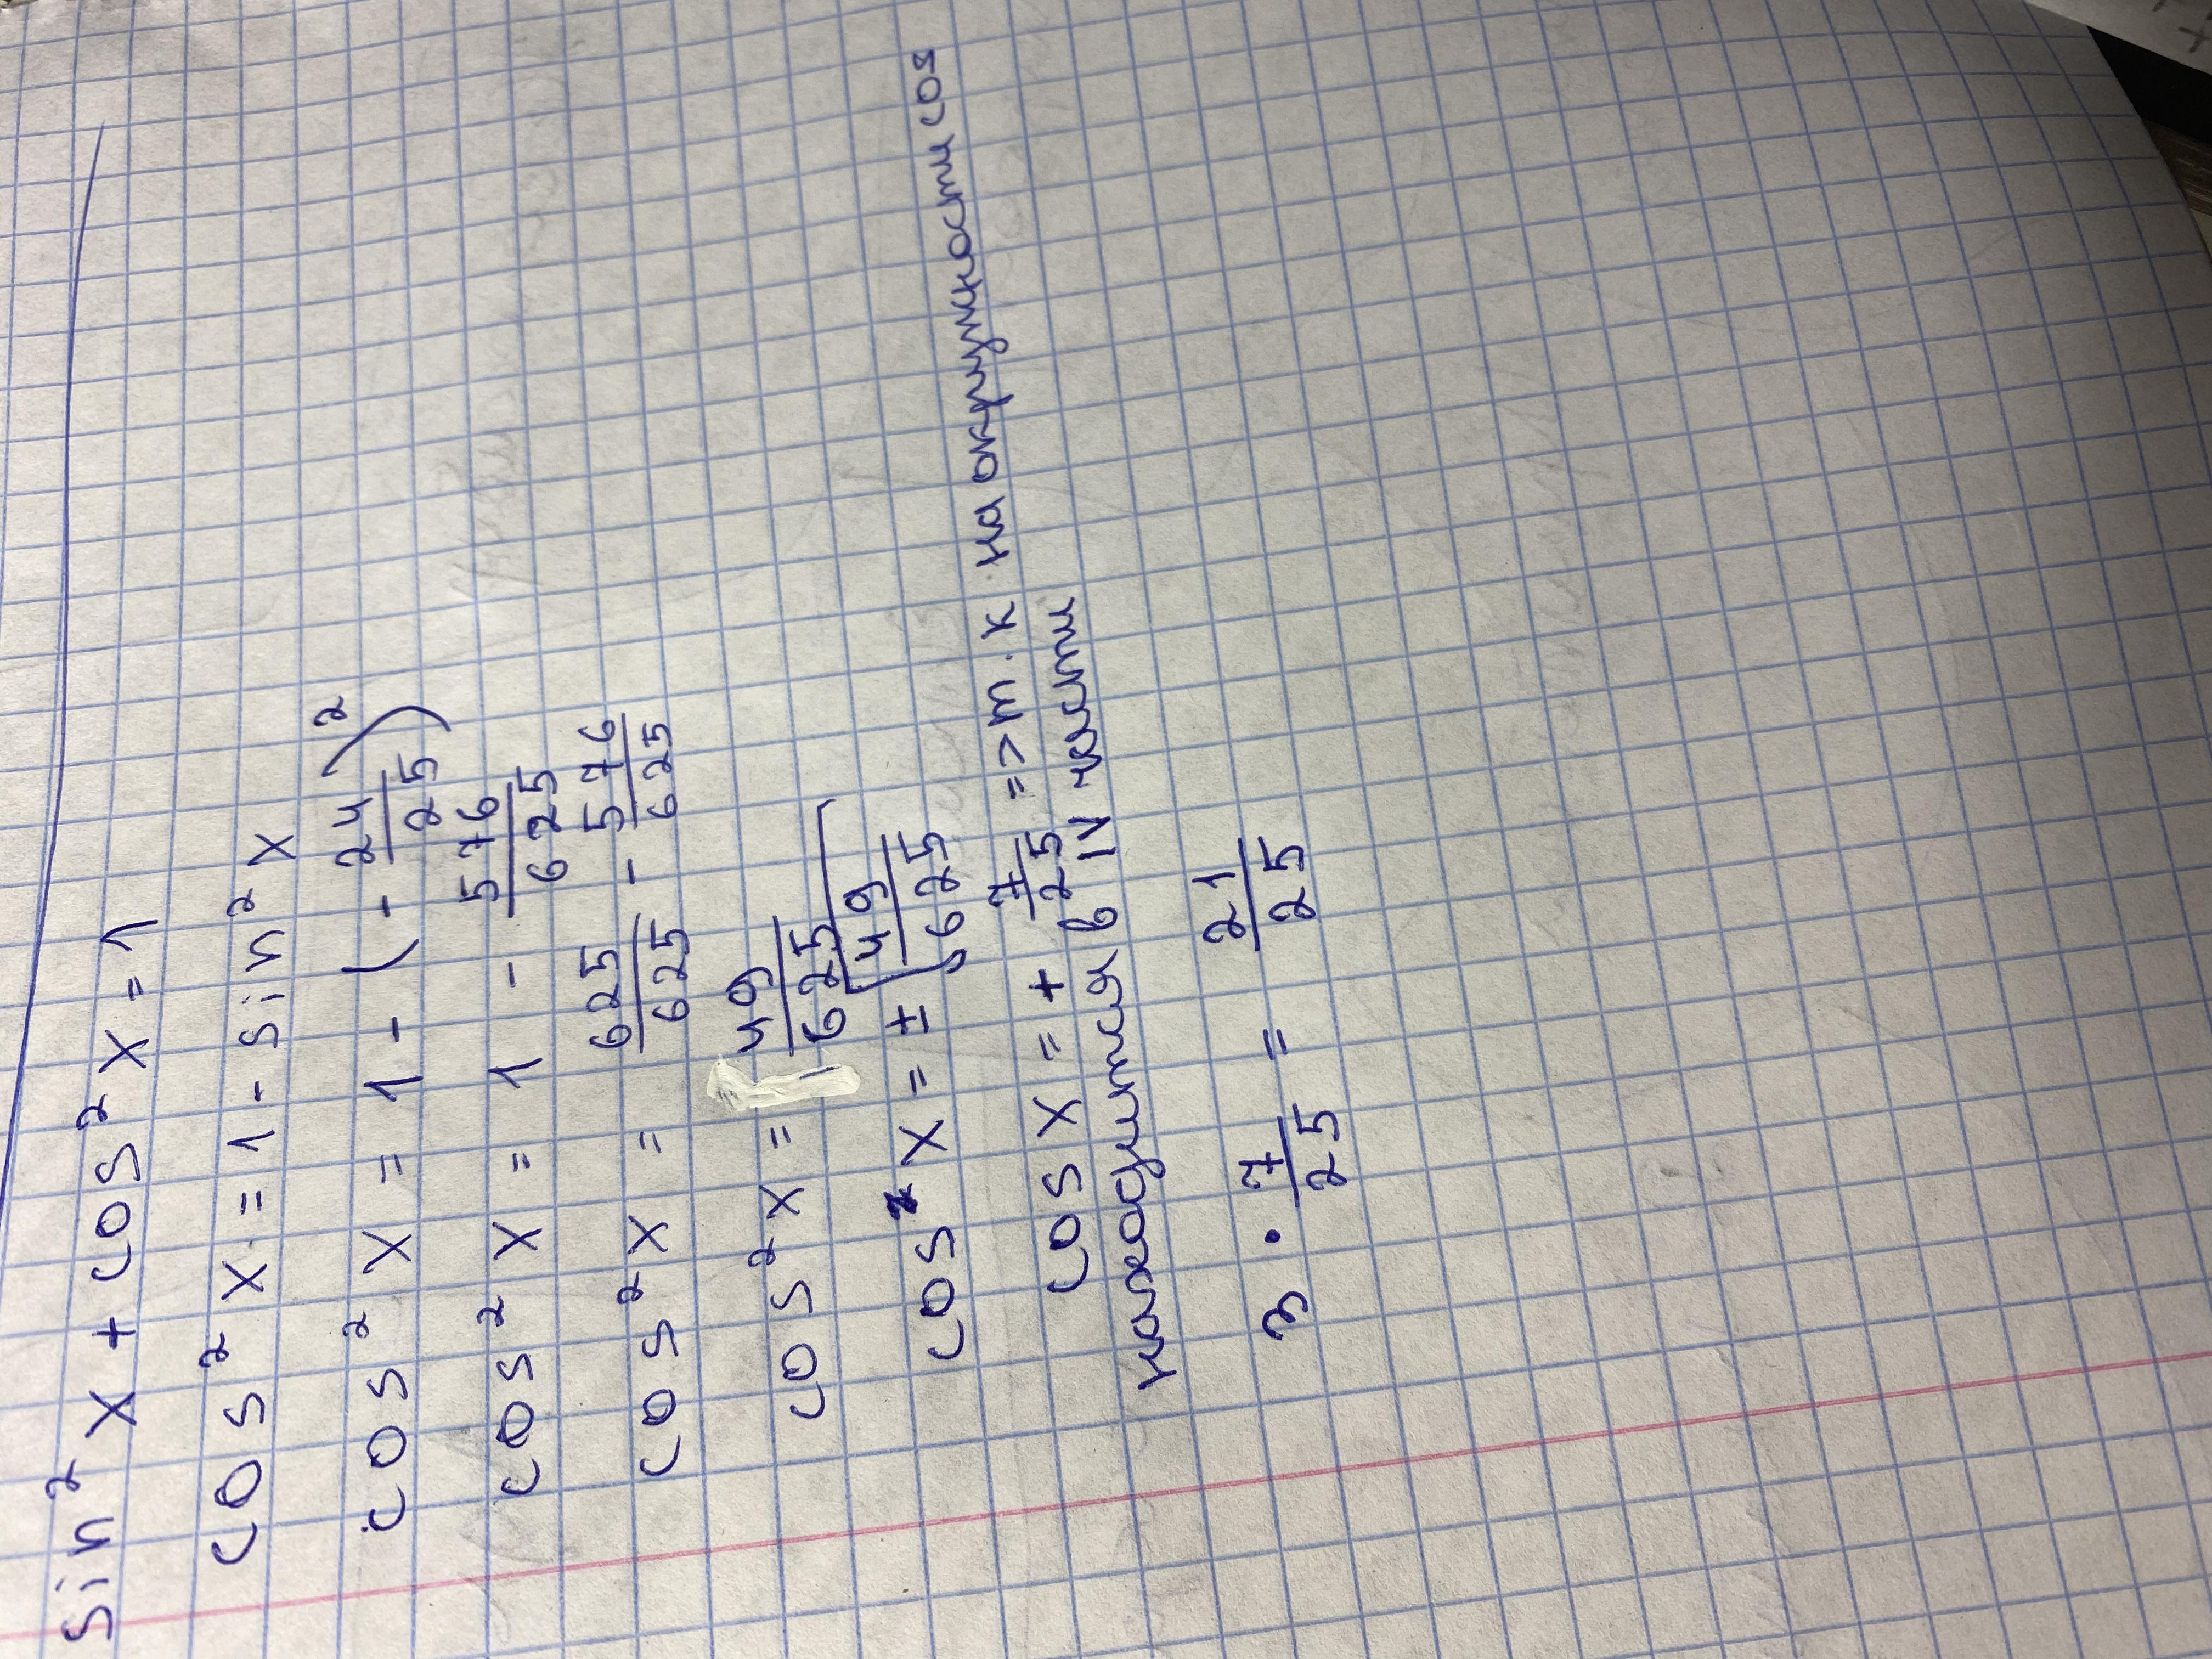 sin²x + cos²x = 1
cos²x = 1 - sin²x
cos²x = 1 - (- 24/25)²
cos²x = 1 - 576/625
cos²x = 625/625 - 576/625
cos²x = 49/625
cos x = ± √49/625
cos x = + 7/25 => т.к на окружности cos
находится в IV части
3 · 7/25 = 21/25